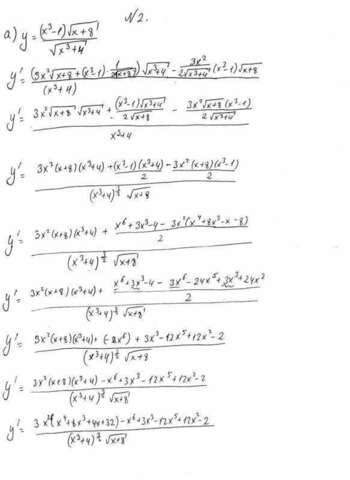 №2.
a) y = (x³-1)√(x+8) / √(x³+4)
y' = ((3x²√(x+8) + (x³-1)·1/(2√(x+8)))√(x³+4) - 3x²/(2√(x³+4)) (x³-1)√(x+8)) / (x³+4)
y' = (3x²√(x+8)√(x³+4) + (x³-1)√(x³+4)/(2√(x+8)) - 3x²√(x+8)(x³-1)/(2√(x³+4))) / (x³+4)
y' = (3x²(x+8)(x³+4) + (x³-1)(x³+4)/2 - 3x²(x+8)(x³-1)/2) / ((x³+4)^(3/2) √(x+8))
y' = (3x²(x+8)(x³+4) + (x⁶+3x³-4-3x²(x⁴+8x³-x-8))/2) / ((x³+4)^(3/2) √(x+8))
y' = (3x²(x+8)(x³+4) + (x⁶+3x³-4-3x⁶-24x⁵+3x³+24x²)/2) / ((x³+4)^(3/2) √(x+8))
y' = (3x²(x+8)(x³+4) + (-2x⁶) + 3x³-12x⁵+12x²-2) / ((x³+4)^(3/2) √(x+8))
y' = (3x²(x+8)(x³+4) - x⁶+3x³-12x⁵+12x²-2) / ((x³+4)^(3/2) √(x+8))
y' = (3x²(x⁴+8x³+4x+32) - x⁶+3x³-12x⁵+12x²-2) / ((x³+4)^(3/2) √(x+8))